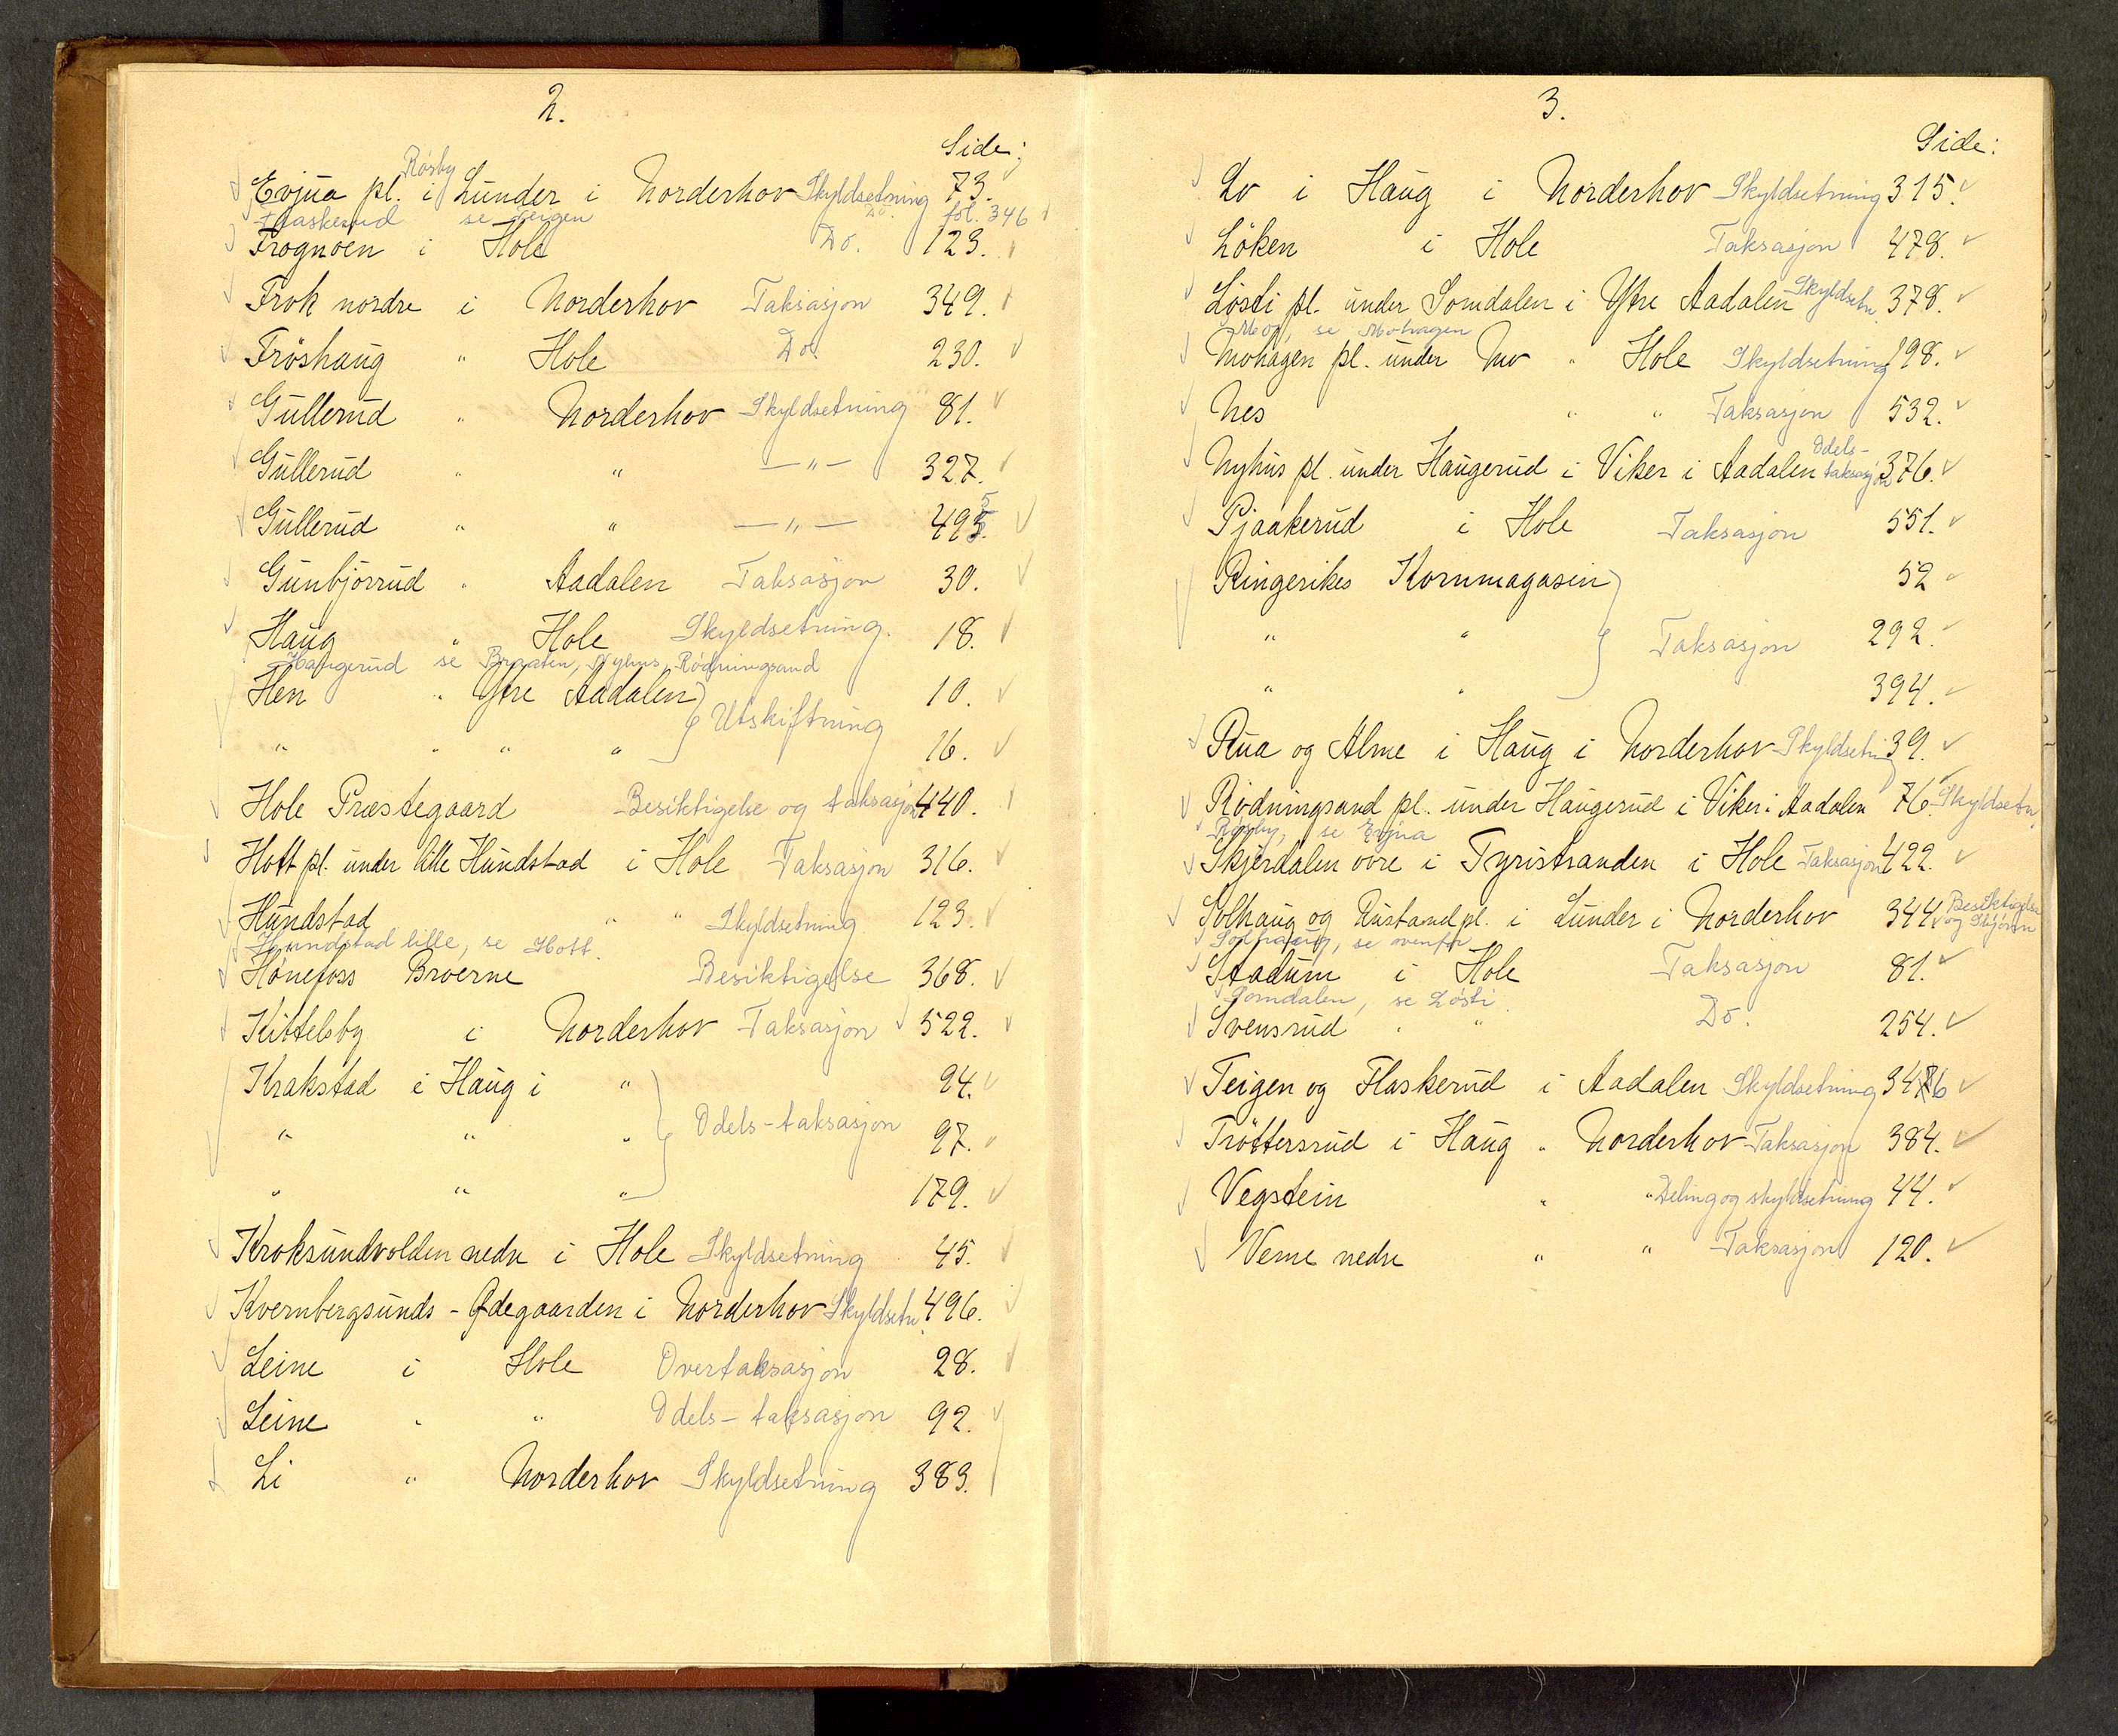 2.
Side:
Røsby
Evjua pl. i Lunder i Norderhov Skyldsetning 73.
Flaskerud se Teigen Do. fol. 346
Frognøen i Hole Do. 123.
Frok nordre i Norderhov Taksasjon 349.
Frøshaug " Hole Do. 230.
Gullerud " Norderhov Skyldsetning 81.
Gullerud " " —"— 327.
Gullerud " " —"— 495.
Gunbjørrud " Aadalen Taksasjon 30.
Haug " Hole Skyldsetning. 18.
Haugerud se Braaten, Nyhus, Rødningsand
Hen " Ytre Aadalen } Utskiftning 10.
" " " " 16.
Hole Præstegaard Besiktigelse og taksasjon 440.
Hott pl. under lille Hundstad i Hole Taksasjon 316.
Hundstad " " Skyldsetning 123.
Hundstad lille, se Hott.
Hønefoss Broerne Besiktigelse 368.
Kittelsby i Norderhov Taksasjon 522.
Krakstad i Haug i " 94.
" " " } Odels-taksasjon 97.
" " " 179.
Kroksundvolden nedre i Hole Skyldsetning 45.
Kvernbergsunds-Ødegaarden i Norderhov Skyldsetn. 496.
Leine i Hole Overtaksasjon 28.
Leine " " Odels-taksasjon 92.
Li " Norderhov Skyldsetning 383.
3.
Side:
Lo i Haug i Norderhov Skyldsetning 315.
Løken i Hole Taksasjon 478.
Løsti pl. under Somdalen i Ytre Aadalen Skyldsetn. 378.
Mo, se Mohagen
Mohagen pl. under Mo " Hole Skyldsetning 198.
Nes " " Taksasjon 532.
Nyhus pl. under Haugerud i Viker i Aadalen Odels-taksasjon 376.
Pjaakerud i Hole Taksasjon 551.
Ringerikes Kornmagasin 52
" " } Taksasjon 292.
" " 394.
Rua og Alme i Haug i Norderhov Skyldsetning 39.
Rødningsand pl. under Haugerud i Viker i Aadalen 76. Skyldsetn.
Røsby, se Evjua
Skjerdalen øvre i Tyristranden i Hole Taksasjon 422.
Solhaug og Rustand pl. i Lunder i Norderhov 344. Besiktigelse og Skjønn
Solhaug, se ovenfor
Stadum i Hole Taksasjon 81.
Somdalen, se Løsti.
Svensrud " " Do. 254.
Teigen og Flaskerud i Aadalen Skyldsetning 346
Trøttersrud i Haug " Norderhov Taksasjon 384.
Vegstein " " Deling og skyldsetning 44.
Verne nedre " " Taksasjon 120.